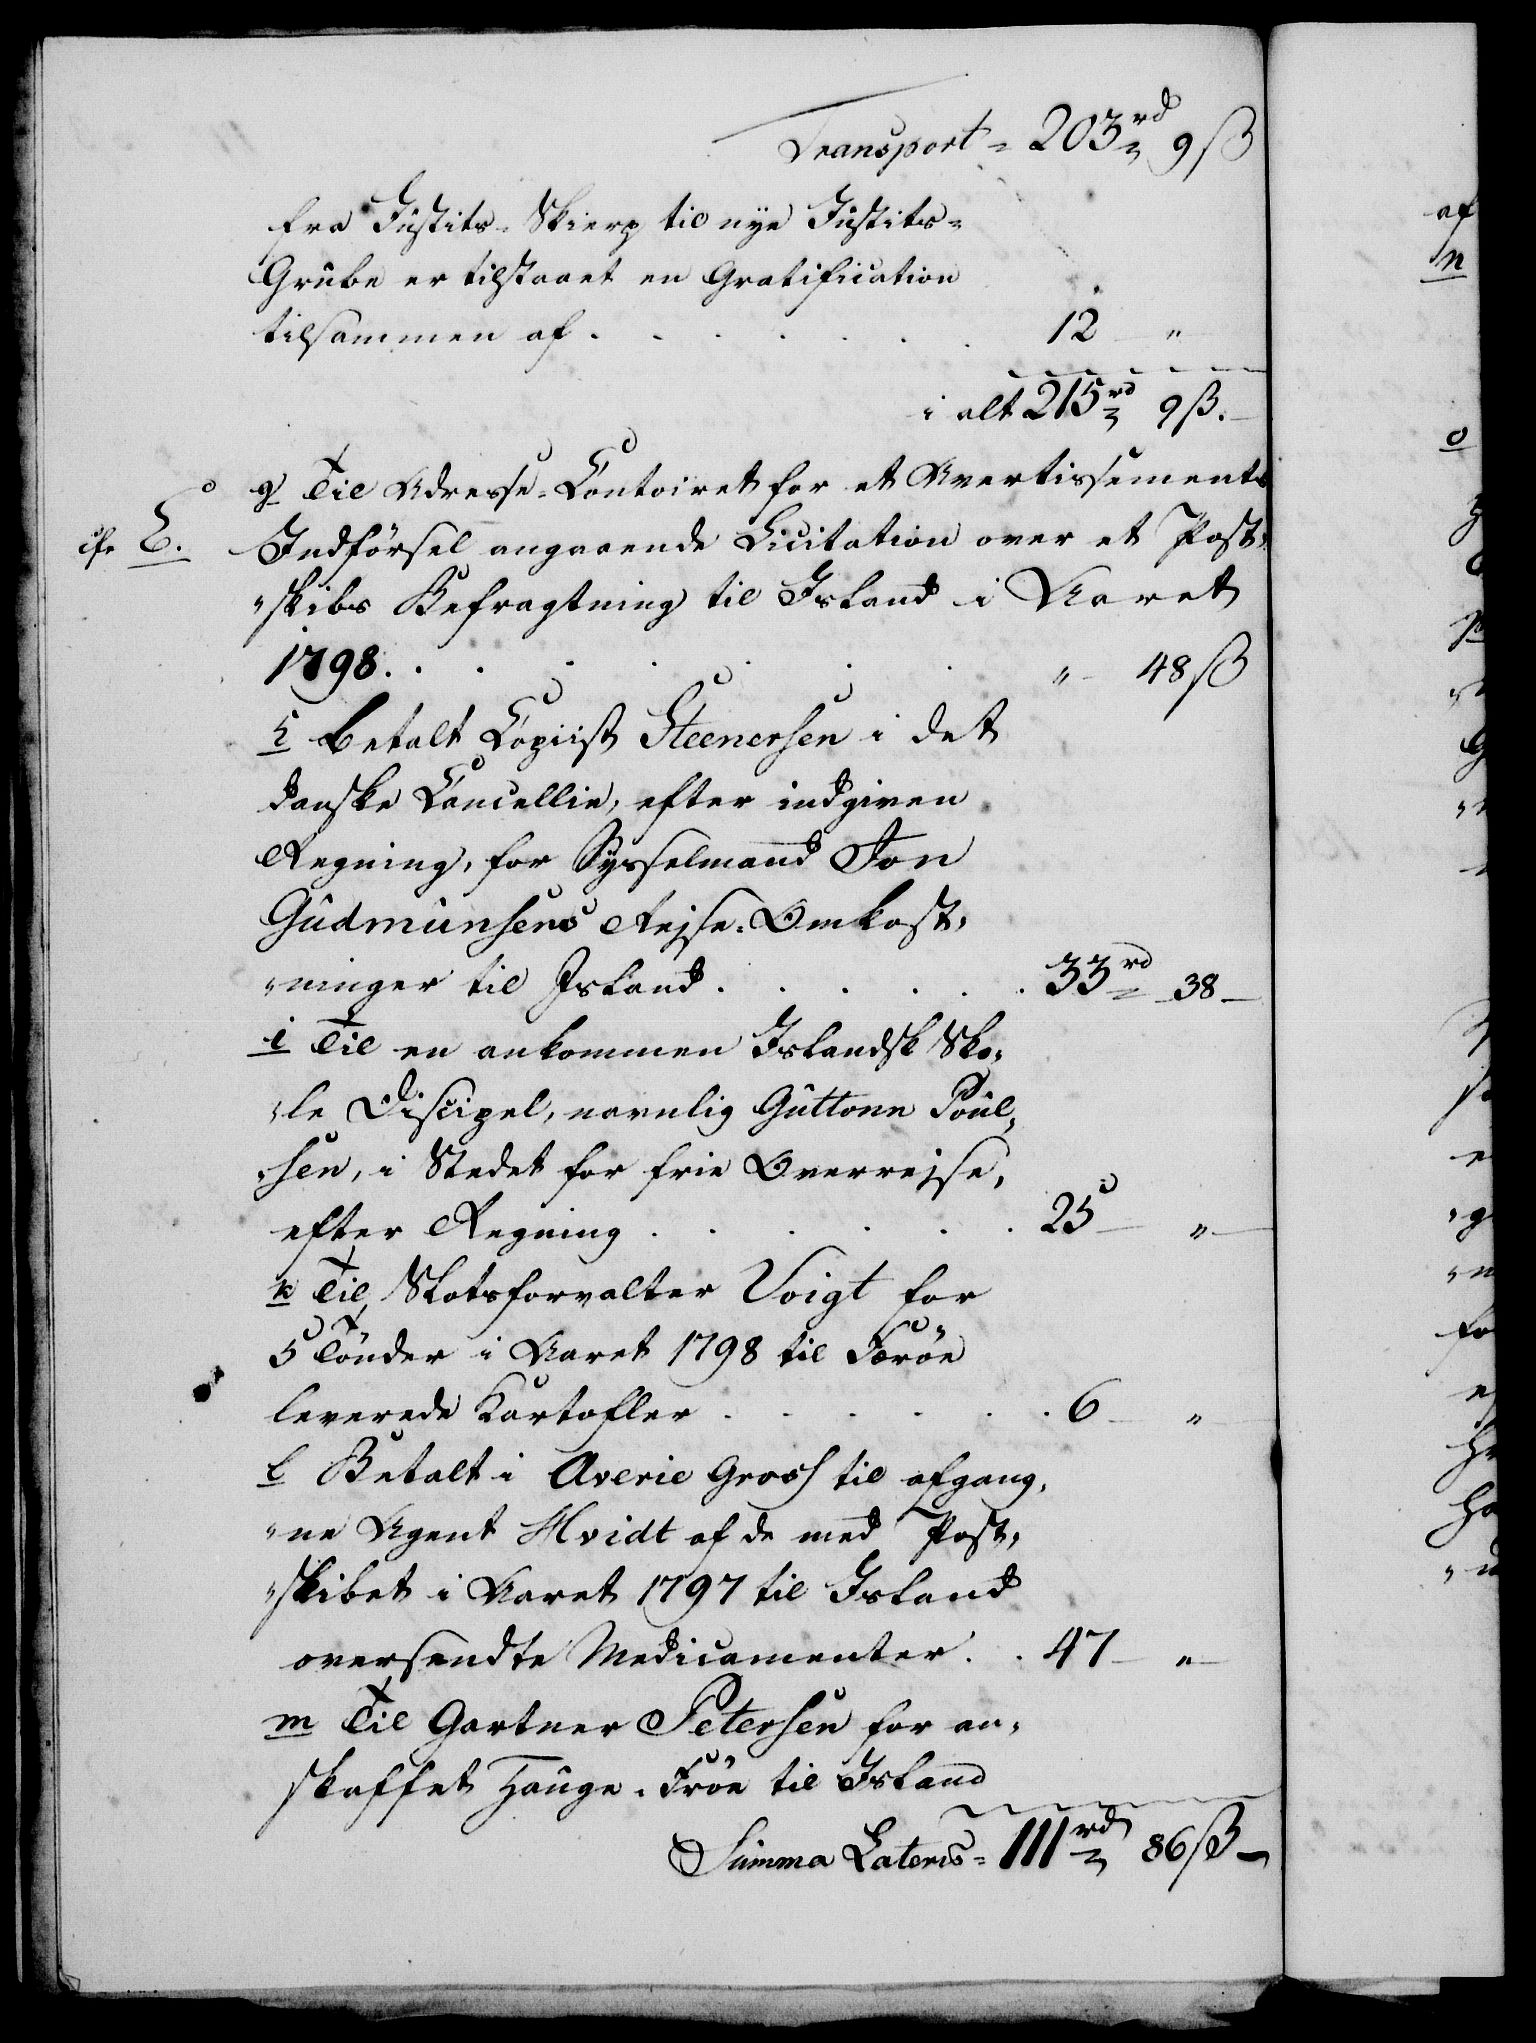 Transport = 203 rd 9 ß
fra Justits-Skierp til nye Justits=
Grube er tilstaaet en Gratification
tilsammen af . . . . . . 12 — "
i alt 215 rd 9 ß. —
g Til Adresse-Contoiret for et Avertissements
cfr E. Indförsel angaaende Licitation over et Post=
"skibs Befragtning til Island i Aaret
1798. . . . . . . " — 48 ß
h Betalt Copiist Steenersen i det
danske Cancellie, efter indgiven
Regning, for Sysselmand Jon
Gudmunsens Reise-Omkost=
"ninger til Island . . . . . 33 rd 38 —
i Til en ankommen Islandsk Sko=
"le Discipel, navnlig Guttorm Poul=
"sen, i Stedet for frie Overreise,
efter Regning . . . . . 25 — " —
k Til Slotsforvalter Voigt for
5 Tönder i Aaret 1798 til Færöe
leverede Kartofler . . . . . 6 — "
l Betalt i Averie Gross til afgang=
"ne Agent Hvidt af de med Post=
"skibet i Aaret 1797 til Island
oversendte Medicamenter . . 47 — " —
m Til Gartner Petersen for an=
skaffet Hauge-Fröe til Island
Summa Lateris = 111 rd 86 ß —
af
n
o